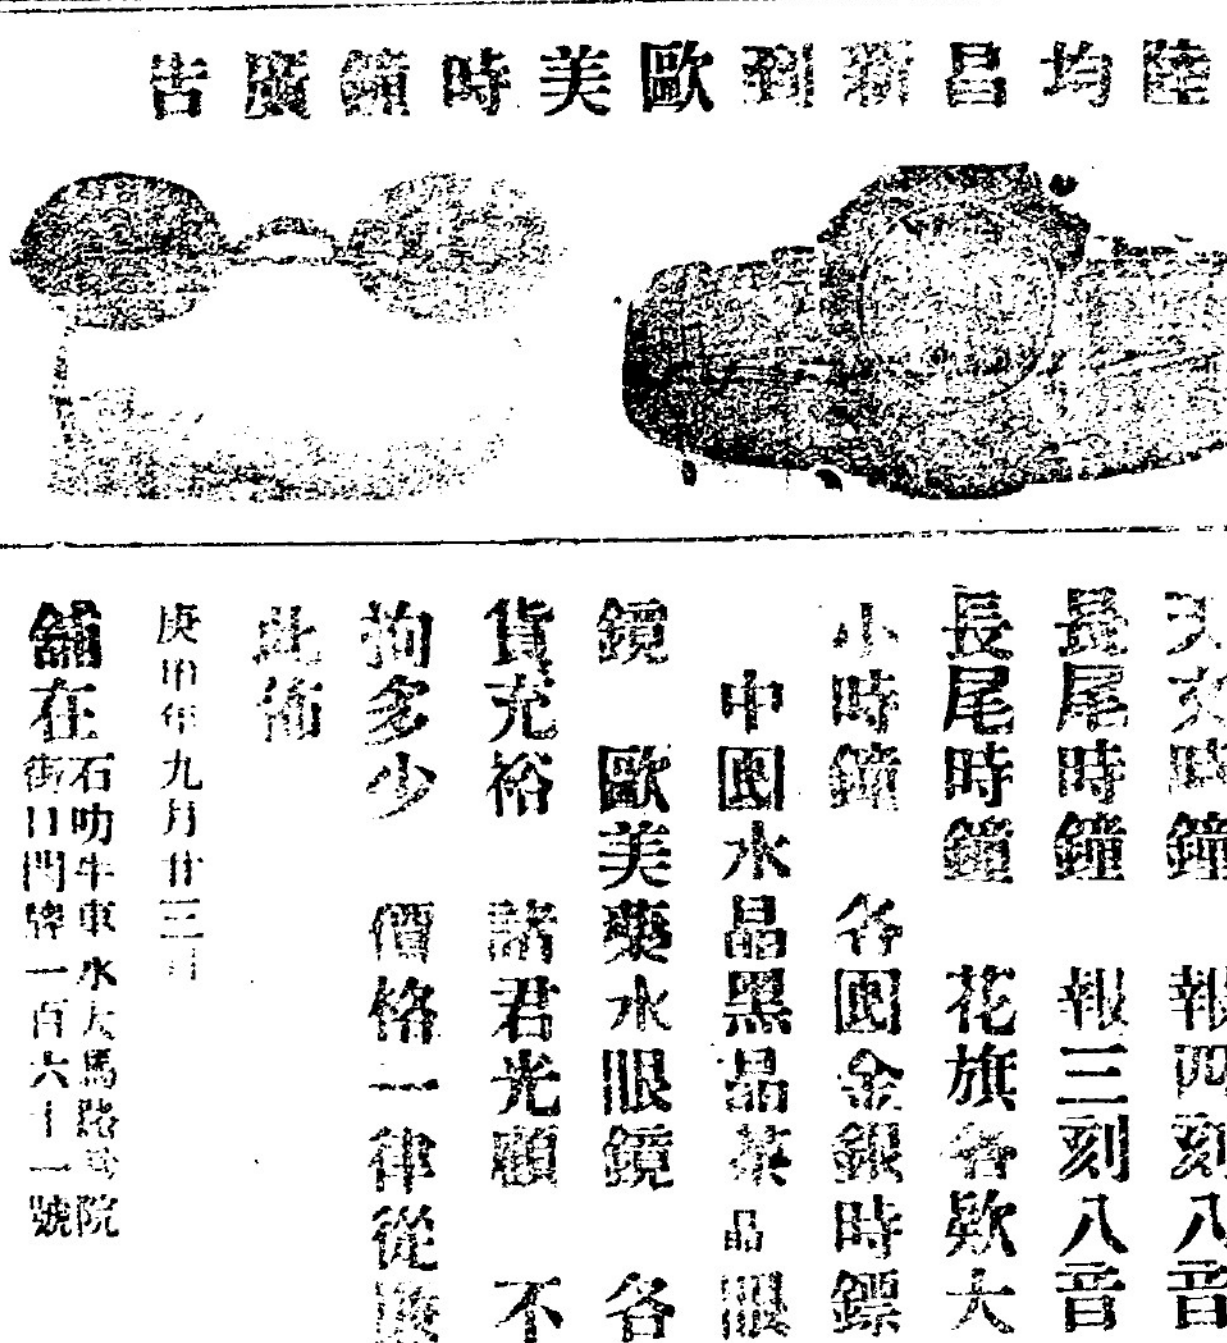 陸均昌新到歐美時鐘廣告
時鐘 報四刻八音
長尾時鐘 報三刻八音
長尾時鐘 花旗各欵大
小時鐘 各國金銀時鏢
中國水晶黑晶茶晶眼
鏡 歐美藥水眼鏡 各
貨充裕 諸君光顧 不
拘多少 價格一律從
此佈
庚申年九月廿三日
舖在
石叻牛車水大馬路戲院
街口門牌一百六十一號